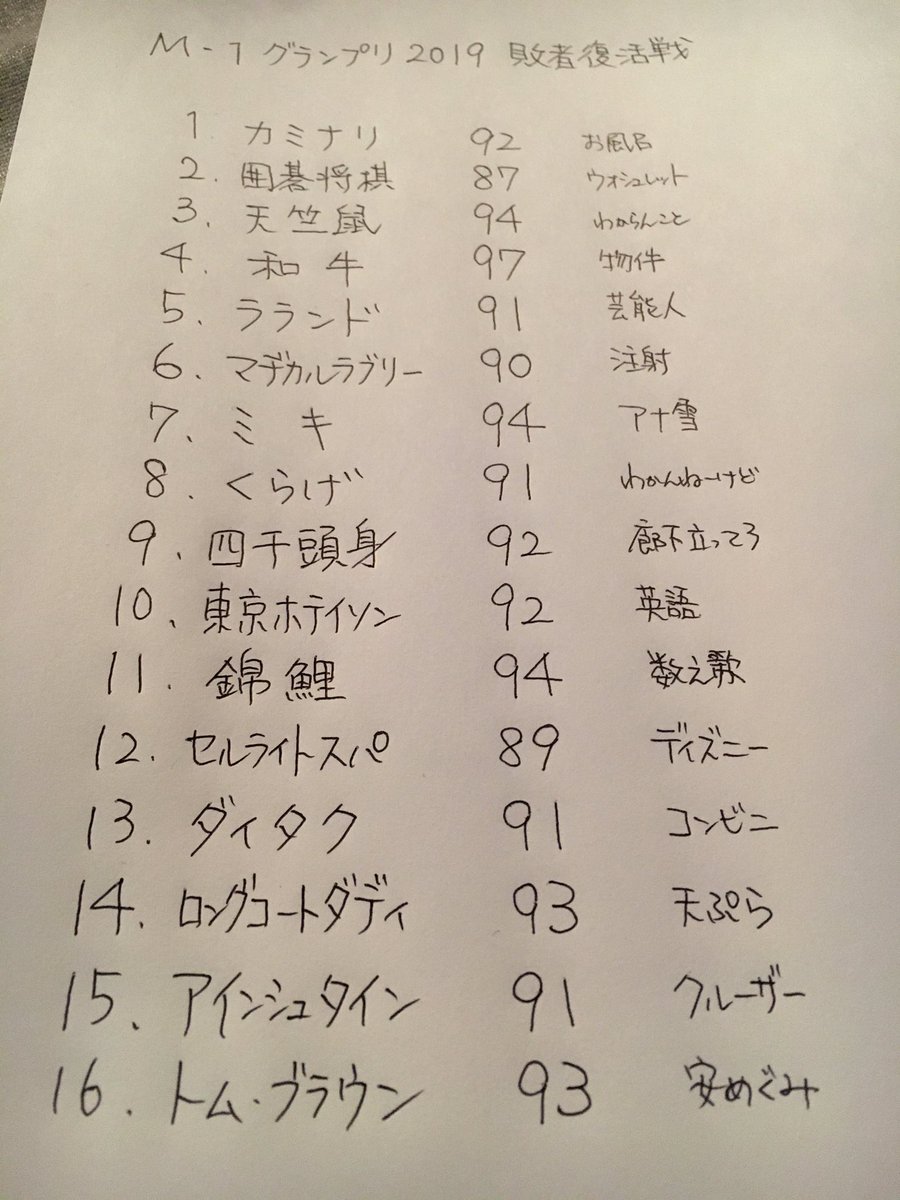 M-1グランプリ2019 敗者復活戦
1 カミナリ 92 お風呂
2. 囲碁将棋 87 ウォシュレット
3. 天竺鼠 94 わからんこと
4. 和牛 97 物件
5. ラランド 91 芸能人
6. マヂカルラブリー 90 注射
7. ミキ 94 アナ雪
8. くらげ 91 わかんねーけど
9. 四千頭身 92 廊下立ってろ
10. 東京ホテイソン 92 英語
11. 錦鯉 94 数え歌
12. セルライトスパ 89 ディズニー
13. ダイタク 91 コンビニ
14. ロングコートダディ 93 天ぷら
15. アインシュタイン 91 クルーザー
16. トム・ブラウン 93 安めぐみ